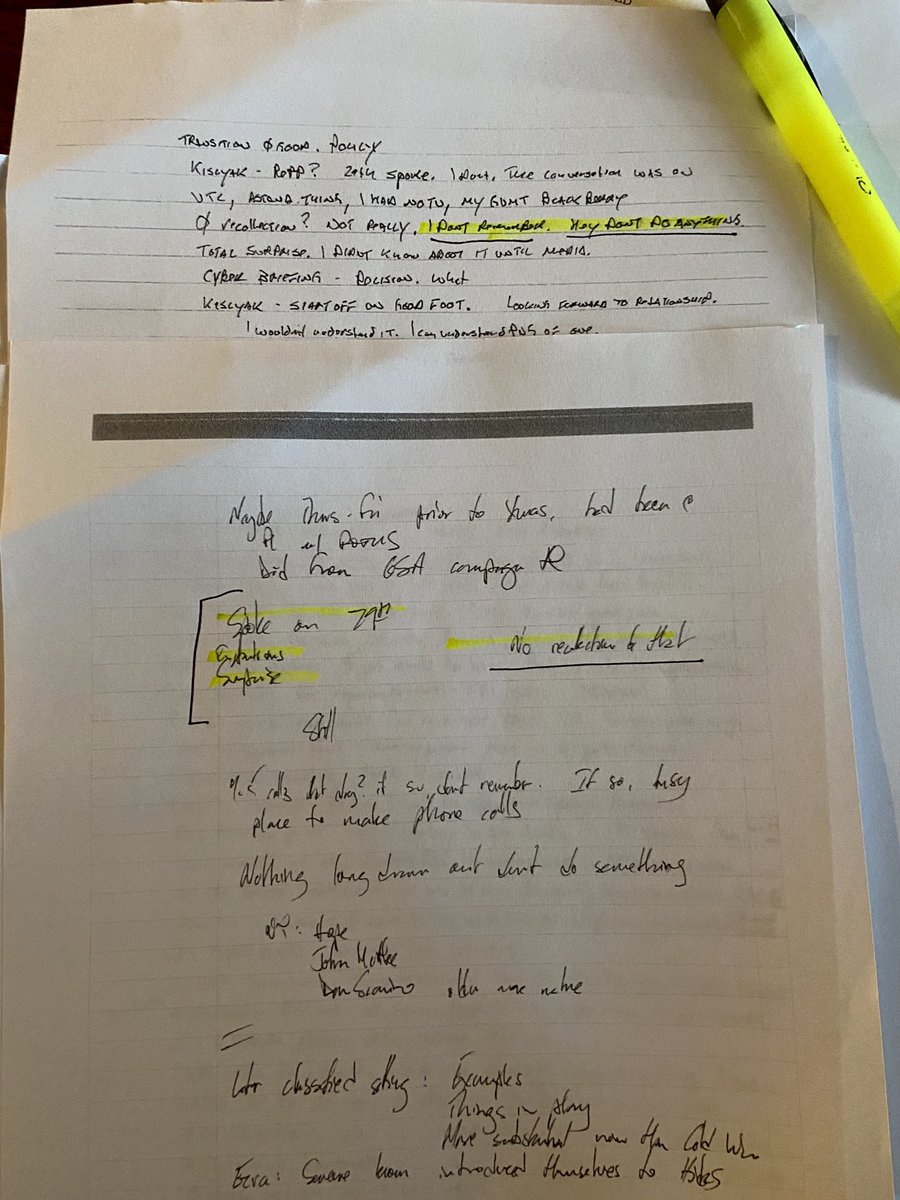 TRANSITION Ø FOOD. POLICY
KISLYAK - REPP? 29th SPOKE. I DON'T. THE CONVERSATION WAS ON
VTC, THING, I HAD NO TV, MY GOMT BLACKBERRY
Ø RECOLLECTION? NOT REALLY. I DON'T REMEMBER. HEY DON'T DO ANYTHING.
TOTAL SURPRISE. I DIDN'T KNOW ABOUT IT UNTIL MEDIA.
CYBER BRIEFING - DECISION. WHAT
KISLYAK - START OFF ON GOOD FOOT. LOOKING FORWARD TO RELATIONSHIP.
I wouldn't understand it. I can understand of
Maybe Thurs-Fri prior to Xmas, had been @
w/ POTUS
Did from GSA campaign
Spoke on 29th
Expulsions No recollection to that
Surprise
Still
calls that day? if so, don't remember. If so, busy
place to make phone calls
Nothing long drawn out don't do something
Hope
John
Dan Scavino
=
classified : Examples
Things in play
More substantial now than Cold War
Ezra: Someone introduced themselves to